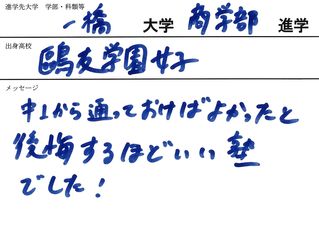 進学先大学 学部・科類等
一橋 大学 商学部 進学
出身高校
鷗友学園女子
メッセージ
中1から通っておけばよかったと
後悔するほどいい塾
でした!